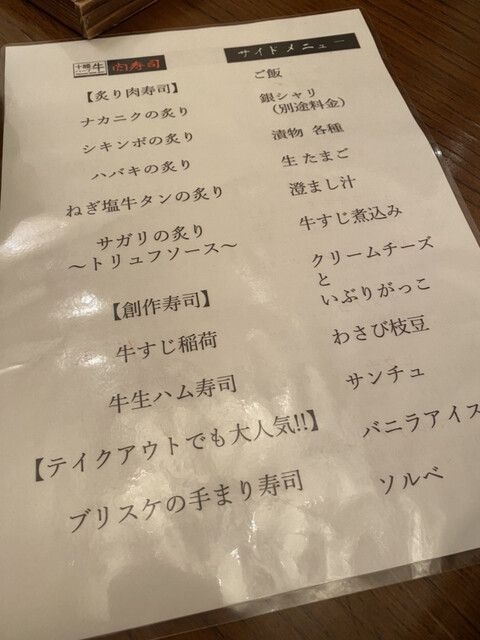 十勝牛 肉寿司
【炙り肉寿司】
ナカニクの炙り
シキンボの炙り
ハバキの炙り
ねぎ塩牛タンの炙り
サガリの炙り
～トリュフソース～
【創作寿司】
牛すじ稲荷
牛生ハム寿司
【テイクアウトでも大人気!!】
ブリスケの手まり寿司
サイドメニュー
ご飯
銀シャリ
(別途料金)
漬物 各種
生 たまご
澄まし汁
牛すじ煮込み
クリームチーズ
と
いぶりがっこ
わさび枝豆
サンチュ
バニラアイス
ソルベ